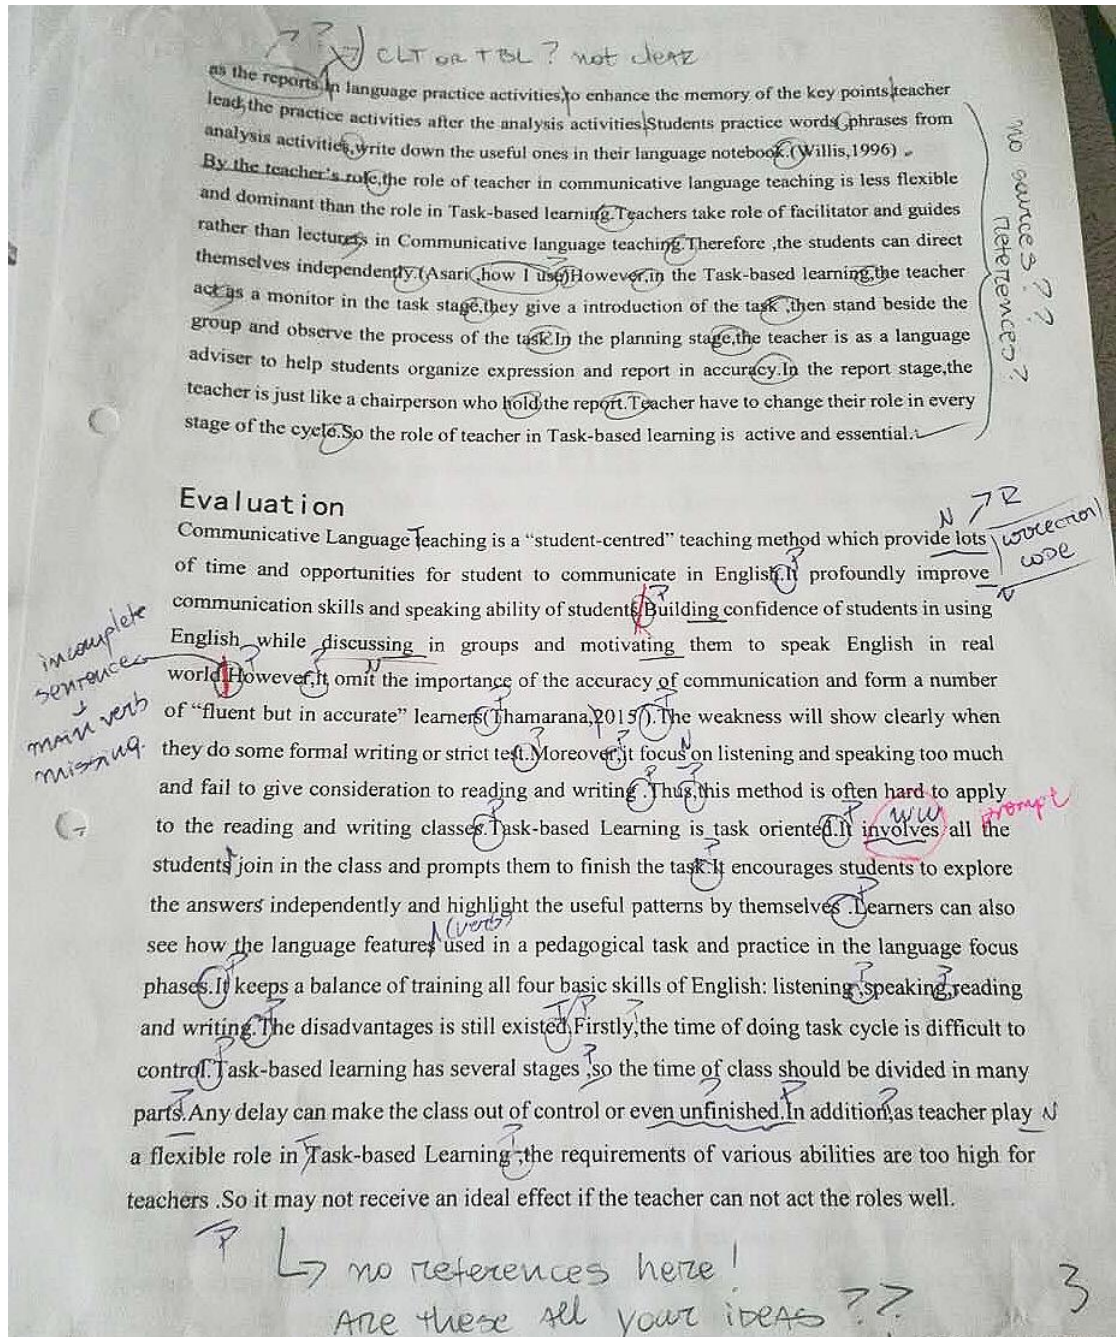 CLT OR TBL? not clear
as the reports.In language practice activities,to enhance the memory of the key points,teacher
lead the practice activities after the analysis activities.Students practice words,phrases from
analysis activities,write down the useful ones in their language notebook.(Willis,1996)
By the teacher's role,the role of teacher in communicative language teaching is less flexible
and dominant than the role in Task-based learning.Teachers take role of facilitator and guides
rather than lecturers in Communicative language teaching.Therefore ,the students can direct
themselves independently.(Asari ,how I use)However,in the Task-based learning,the teacher
act as a monitor in the task stage,they give a introduction of the task ,then stand beside the
group and observe the process of the task.In the planning stage,the teacher is as a language
adviser to help students organize expression and report in accuracy.In the report stage,the
teacher is just like a chairperson who hold the report.Teacher have to change their role in every
stage of the cycle.So the role of teacher in Task-based learning is active and essential.
no sources??
references?
Evaluation
N P
correction
code
Communicative Language Teaching is a “student-centred” teaching method which provide lots
of time and opportunities for student to communicate in English.It profoundly improve
communication skills and speaking ability of students.Building confidence of students in using
English while discussing in groups and motivating them to speak English in real
world.However,it omit the importance of the accuracy of communication and form a number
of “fluent but in accurate” learners(Thamarana,2015).The weakness will show clearly when
they do some formal writing or strict test.Moreover,it focus on listening and speaking too much
and fail to give consideration to reading and writing .Thus,this method is often hard to apply
to the reading and writing classes.Task-based Learning is task oriented.It involves all the
students join in the class and prompts them to finish the task.It encourages students to explore
the answers independently and highlight the useful patterns by themselves .Learners can also
see how the language features used in a pedagogical task and practice in the language focus
phases.It keeps a balance of training all four basic skills of English: listening ,speaking,reading
and writing.The disadvantages is still existed.Firstly,the time of doing task cycle is difficult to
control.Task-based learning has several stages ,so the time of class should be divided in many
parts.Any delay can make the class out of control or even unfinished.In addition,as teacher play
a flexible role in Task-based Learning ,the requirements of various abilities are too high for
teachers .So it may not receive an ideal effect if the teacher can not act the roles well.
incomplete
sentence
main verb
missing.
WW
prompt
(verb)
N
P
no references here!
ARE these all your ideas??
3